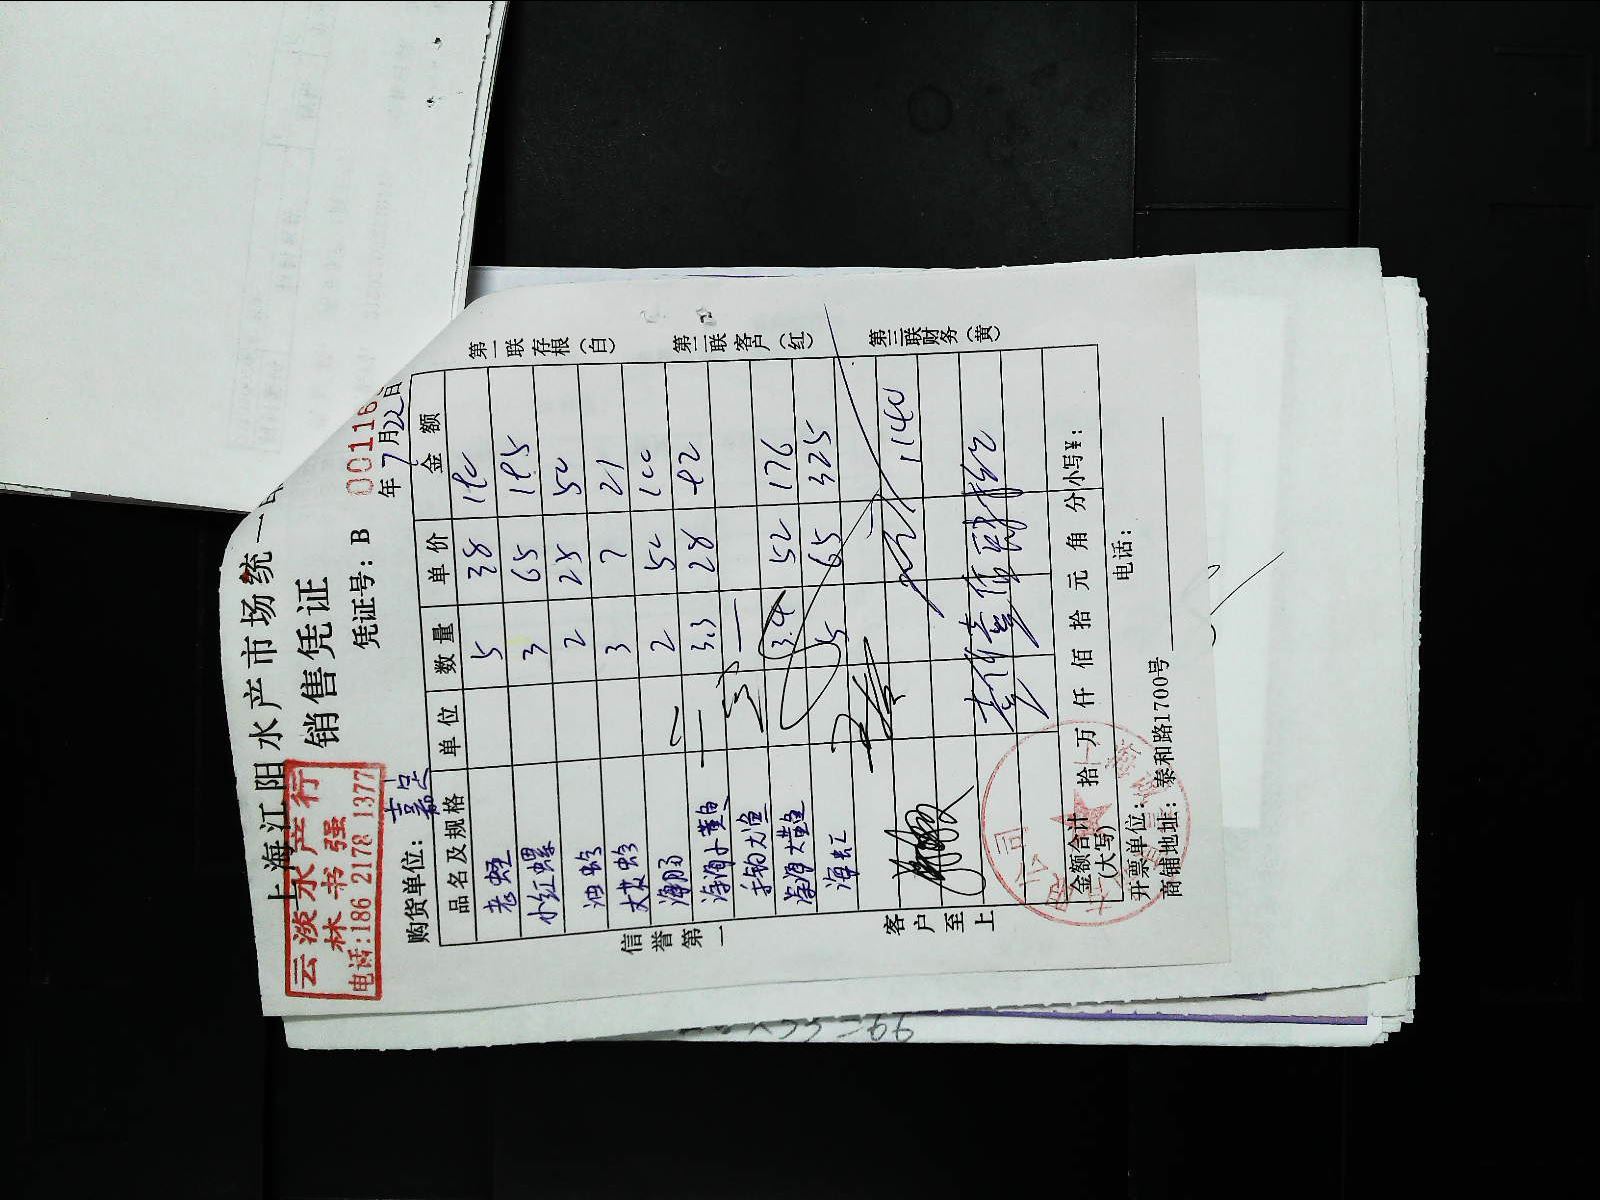 上海江阳水产市场统一
销售凭证
云淡水产行
林书强
电话:186 2178 1377
凭证号: B 00116
购货单位: 嘉定
年7月22日
品名及规格 单位 数量 单价 金额
老蛏 5 38 190
小红螺 3 65 195
油蛤 2 25 50
大花蛤 3 7 21
海肠 2 50 100
深海小黄鱼 3.3 28 92
深海大黄鱼 3.4 52 176
海虹 5 65 325
1140
金额合计(大写) 拾 万 仟 佰 拾 元 角 分 小写¥:
开票单位: 电话:
商铺地址: 泰和路1700号
信誉第一
客户至上
第一联存根(白)
第二联客户(红)
第三联财务(黄)